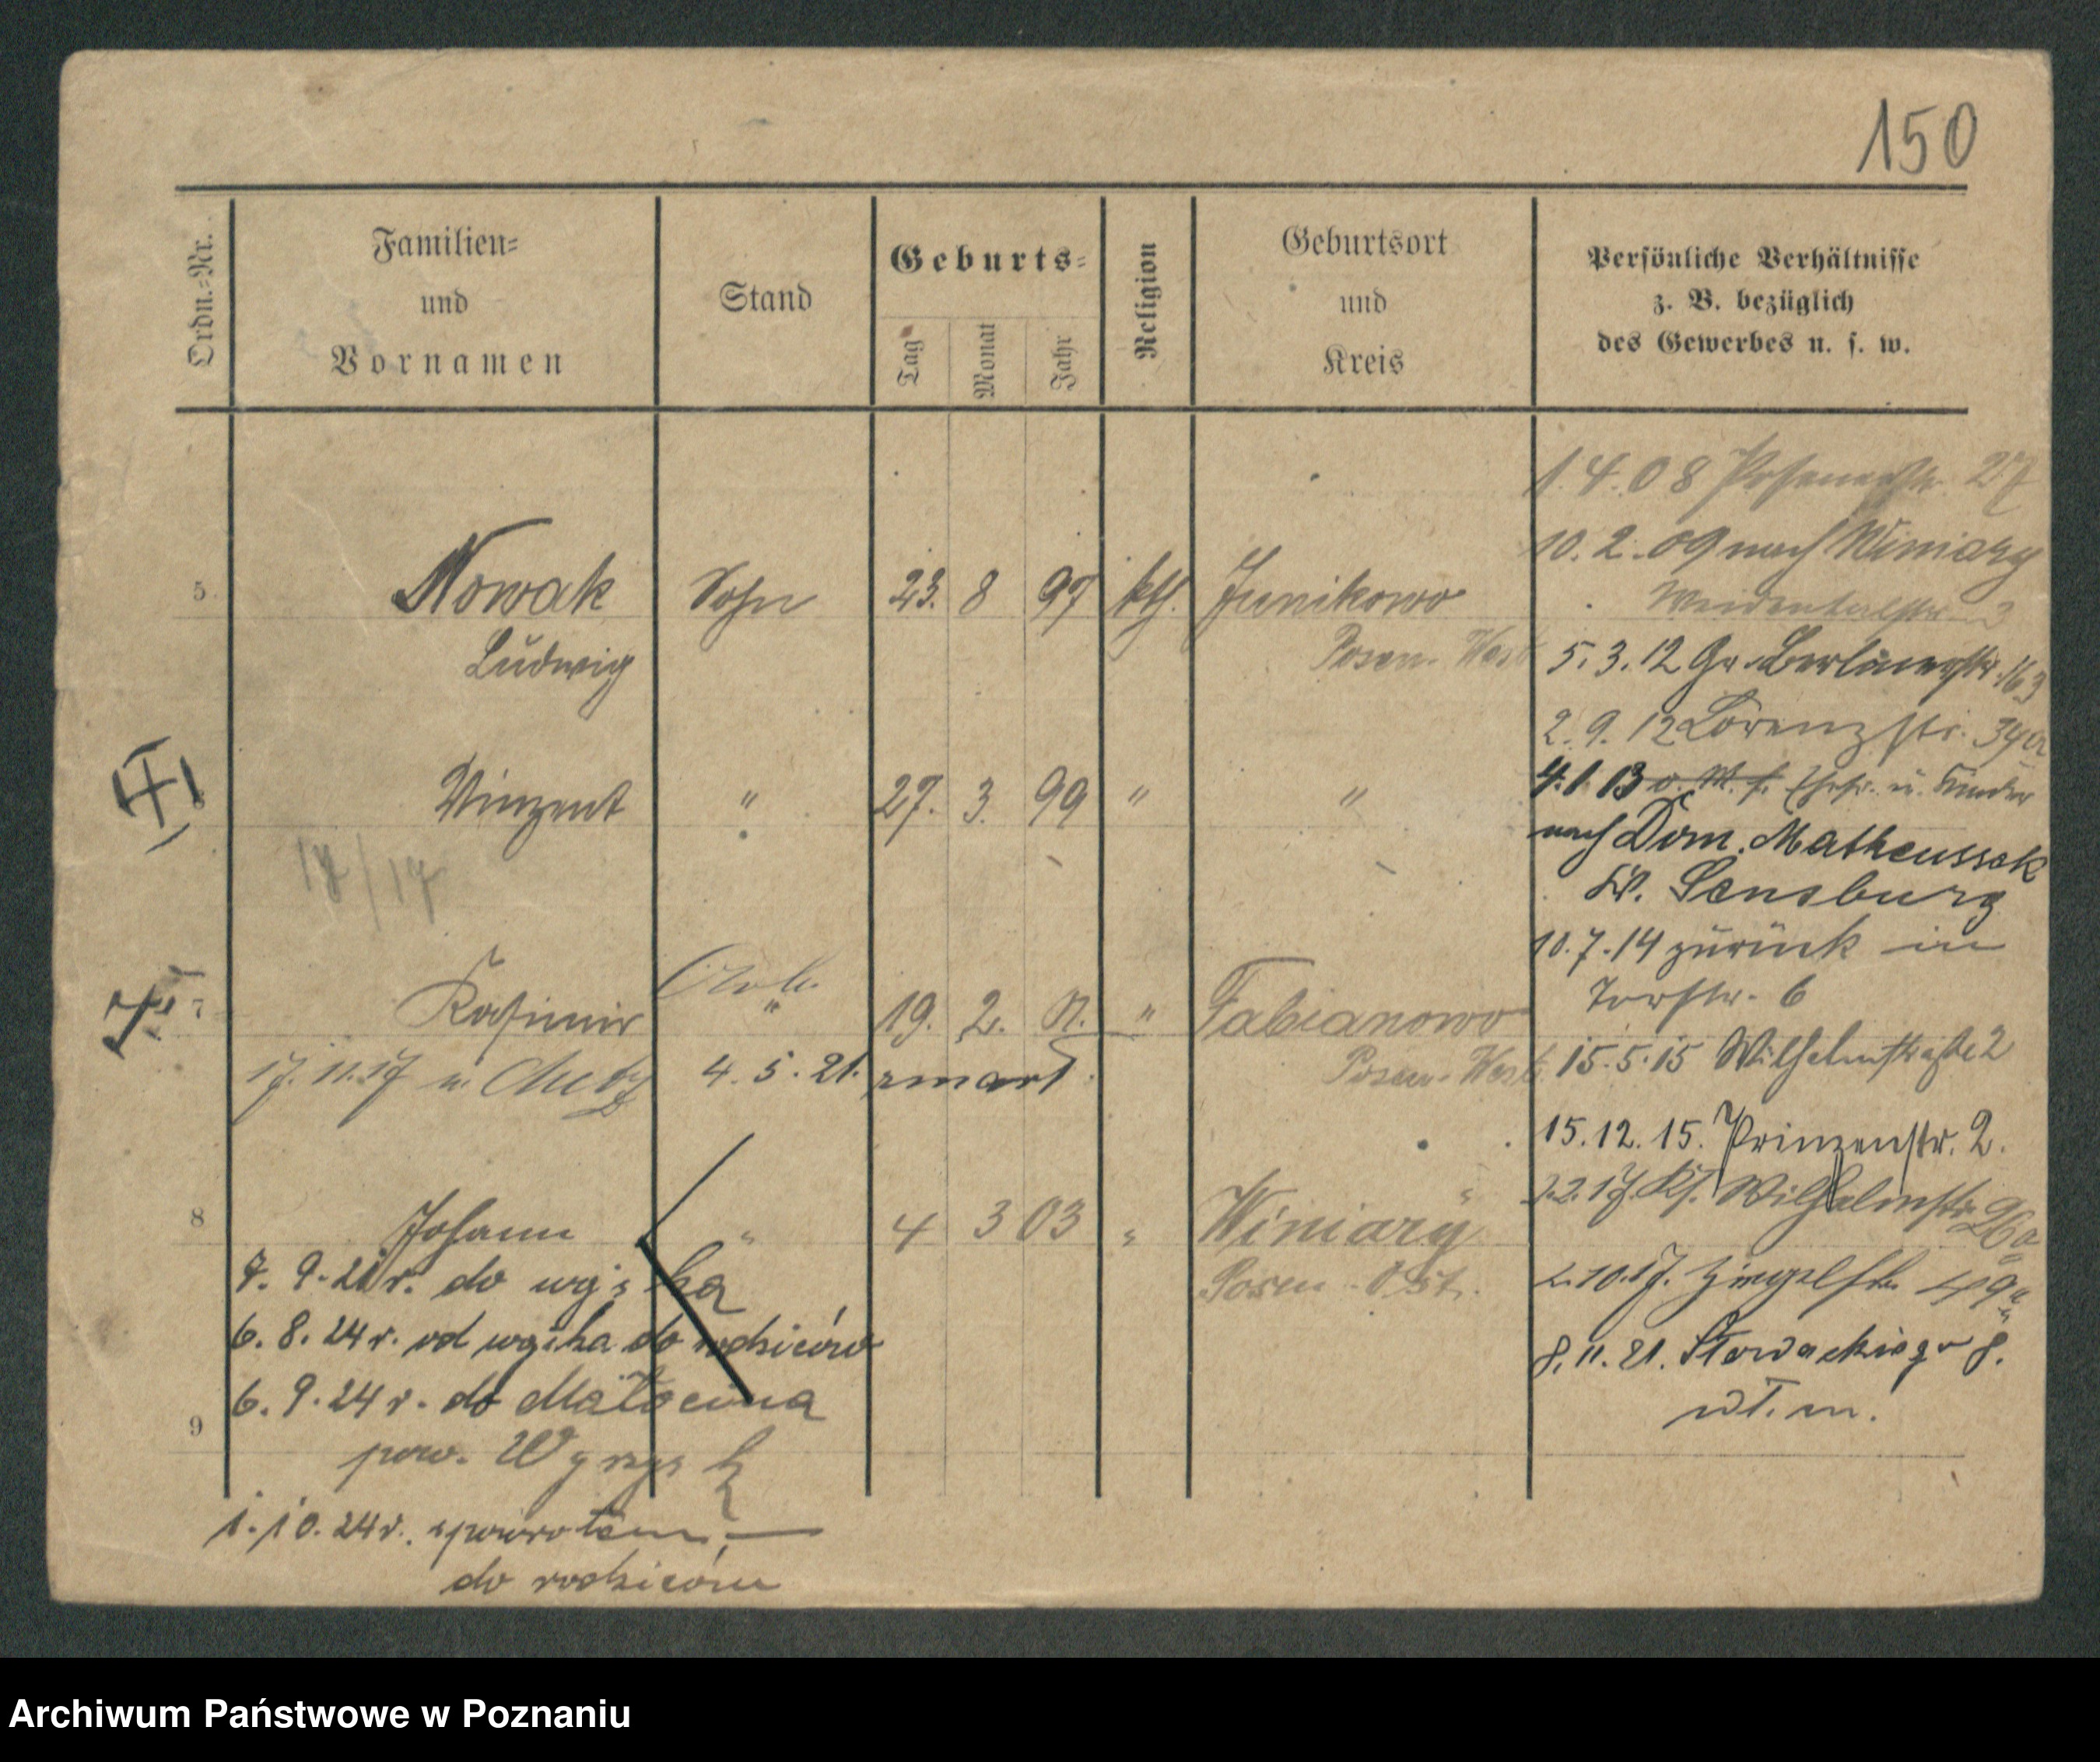 150
Ordn.-Nr.
Familien-
und
Vornamen
Stand
Geburts-
Tag
Monat
Jahr
Religion
Geburtsort
und
Kreis
Persönliche Verhältnisse
z. B. bezüglich
des Gewerbes u. s. w.
1.4.08 Posenerstr. 27
10.2.09 nach Winiary
5. Nowak Sohn 23. 8 97 kth. Junikowo
Ludwig Posen-West
5.3.12 Gr. Berlinerstr. 163
2.9.12 Lorenzstr. 39a
Vinzent " 27. 3. 99 " "
4.1.13 Ehefr. u. Kinder
nach Dom. Matheussek
17/17
Kr. Sensburg
10.7.14 zurück in
Torstr. 6
7 Kasimir " 19. 2. 01. " Fabianowo
17.11.17 n. Metz 4.5.21. zmarł Posen-West
15.5.15 Wilhelmstraße 2
15.12.15. Prinzenstr. 2.
8 Johann " 4 3 03 " Winiary "
Posen-Ost.
Wilhelmstr. 26a
7.9.21 r. do wojska
2.10.17. Ziegelstr.
6.8.24 r. od wojska do rodziców
8.11.21. Słowackiego 8.
6.9.24 r. do Małocina
wł. m.
9
pow. Wyrzysk
1.10.24 r. spowrotem
do rodziców
Archiwum Państwowe w Poznaniu